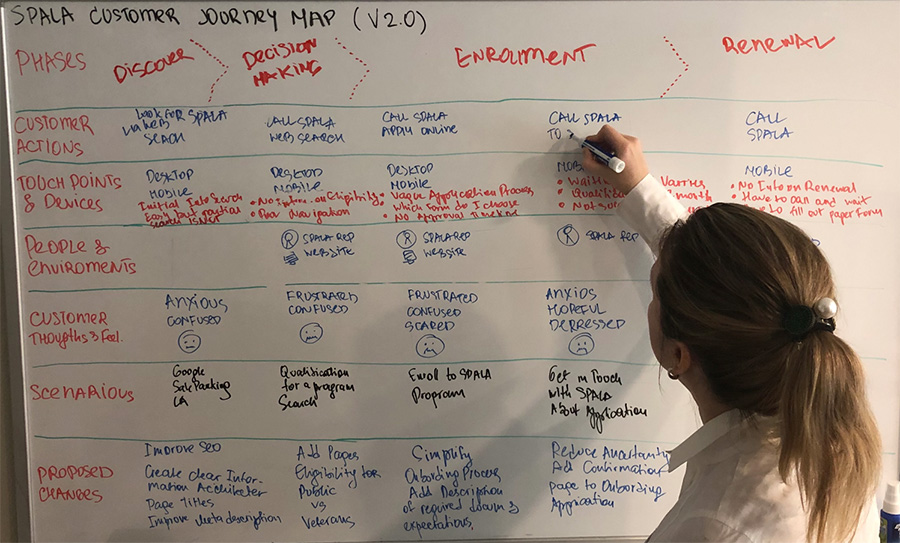 SPALA CUSTOMER JOURNEY MAP (V2.0)
PHASES
DISCOVER
DECISION
MAKING
ENROLLMENT
RENEWAL
CUSTOMER
ACTIONS
LOOK FOR SPALA
VIA WEB
SEACH
CALL SPALA
WEB SEARCH
CALL SPALA
APPLY ONLINE
CALL SPALA
TO
CALL
SPALA
TOUCH POINTS
& DEVICES
DESKTOP
MOBILE
Initial Info Search
Easy but
search
DESKTOP
MOBILE
• No info on Eligibility
• Poor Navigation
DESKTOP
MOBILE
• Vague Application Process
• Which Form do I choose
• No Approval Timeline
MOBI
• Waiti
•
• Not
month
MOBILE
• No Info on Renewal
• Have to call and wait
to fill out paper Form
PEOPLE &
ENVIROMENTS
SPALA REP
WEBSITE
SPALA REP
WEBSITE
SPALA REP
CUSTOMER
THOUGPTHS & FEEL.
ANXIOUS
CONFUSED
FRUSTRATED
CONFUSED
FRUSTRATED
CONFUSED
SCARED
ANXIOS
HOPEFUL
DEPRESSED
SCENARIOUS
Google
Safe Parking
LA
Qualification
for a program
Search
Enroll to SPALA
Program
Get in Touch
with SPALA
About Application
PROPOSED
CHANGES
Improve SEO
Create Clear Infor-
mation
Page Titles
Improve Meta description
Add Pages
Eligibility for
Public
vs
Veterans
Simplify
Onbording Process
Add Description
of required &
expectations,
Reduce
Add Confirmation
page to Onbording
Application